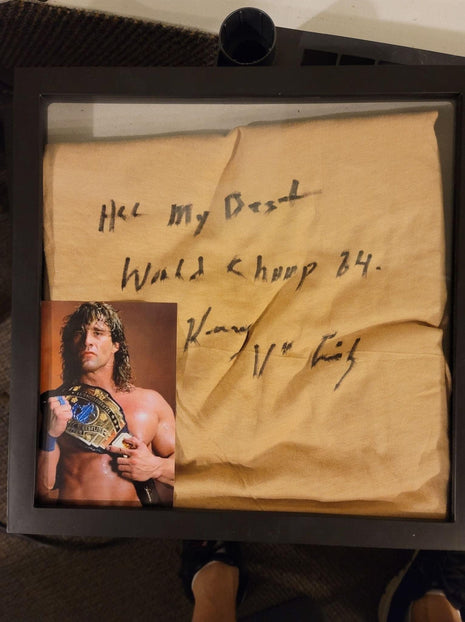 All My Best
World Champ 84.
Kerry
Von Erich